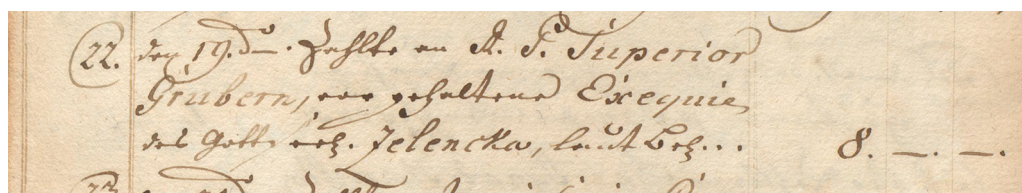 22. den 19. do. Zahlte an R. P. Superior
Grubern, vor gehaltene Exequien
des Gott seel. Jelencka, laut Beÿ... 8. —. —.